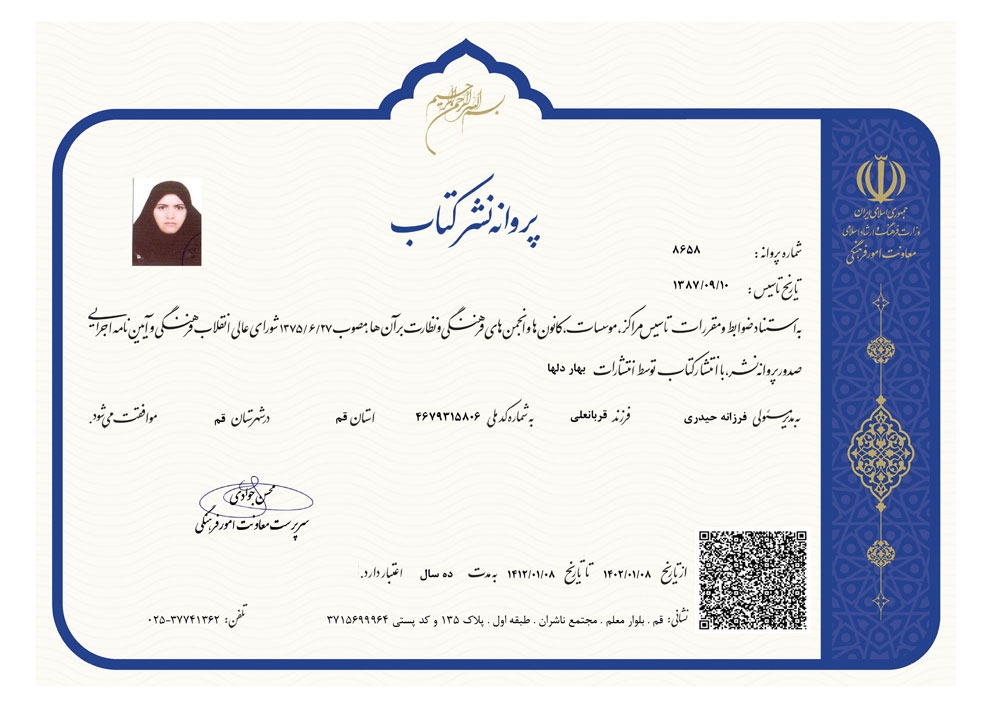 بسم الله الرحمن الرحیم
جمهوری اسلامی ایران
وزارت فرهنگ و ارشاد اسلامی
معاونت امور فرهنگی
پروانه نشر کتاب
شماره پروانه : ۸۶۵۸
تاریخ تاسیس : ۱۳۸۷/۰۹/۱۰
به استناد ضوابط و مقررات تاسیس مراکز، موسسات، کانون ها و انجمن های فرهنگی و نظارت بر آن ها مصوب ۱۳۷۵/۶/۲۷ شورای عالی انقلاب فرهنگی و آیین نامه اجرایی
صدور پروانه نشر، با انتشار کتاب توسط انتشارات بهار دلها
به مدیر مسئولی فرزانه حیدری فرزند قربانعلی به شماره کد ملی ۴۶۷۹۳۱۵۸۰۶ استان قم در شهرستان قم موافقت می شود.
محسن جوادی
سرپرست معاونت امور فرهنگی
از تاریخ ۱۴۰۲/۰۱/۰۸ تا تاریخ ۱۴۱۲/۰۱/۰۸ به مدت ده سال اعتبار دارد.
نشانی: قم . بلوار معلم . مجتمع ناشران . طبقه اول . پلاک ۱۳۵ و کد پستی ۳۷۱۵۶۹۹۹۶۴
تلفن: ۰۲۵-۳۷۷۴۱۳۶۲